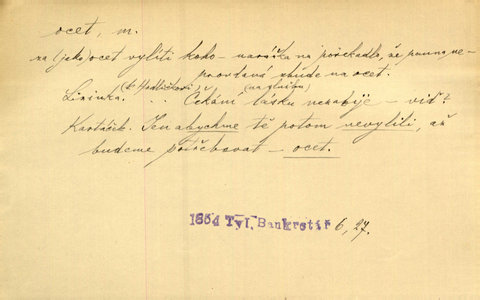 ocet, m.
za (jako) ocet vylíti koho – narážka na pořekadlo, že panna ne-
provdaná zbude na ocet.
Lizinka. (k Hadličkovi) .. (na zlatou) Čekání lásku nezabije – viď?
Kartáček. Jen abychme tě potom nevylili, až
budeme potřebovat – ocet.
1854 Tyl, Bankrotář 6, 27.